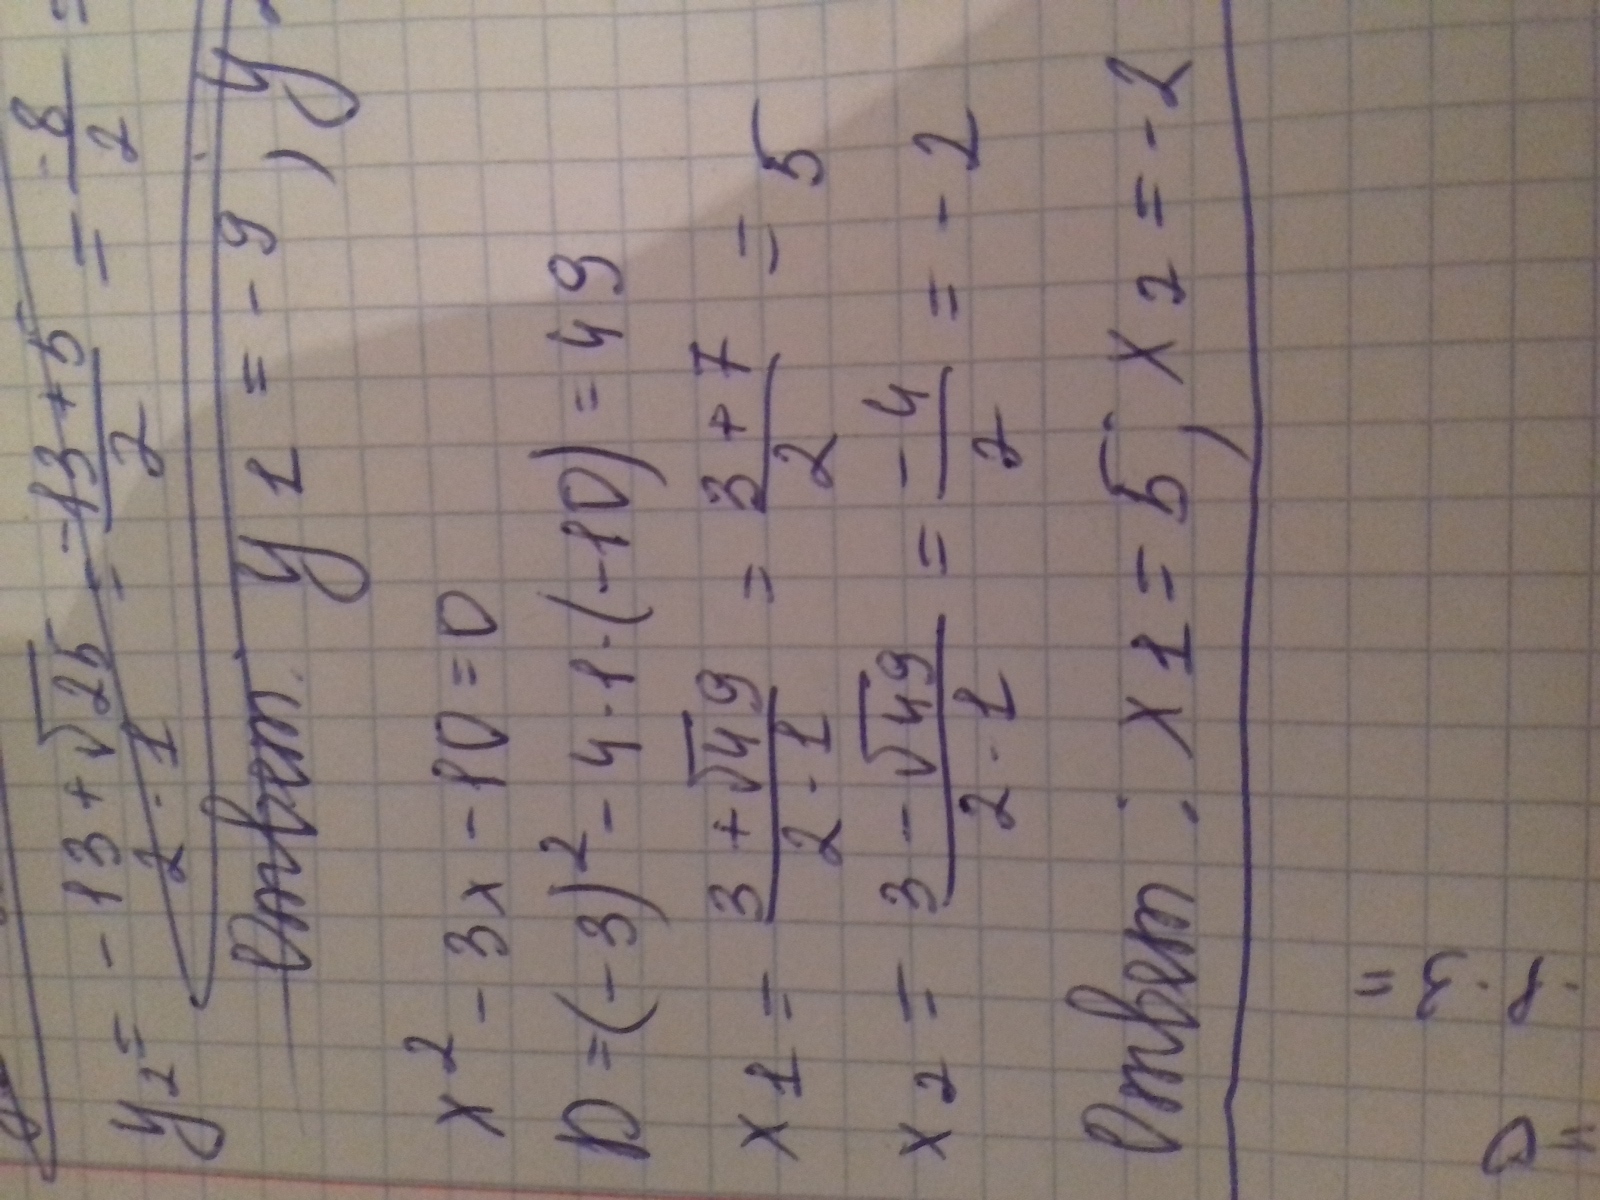 y₂ = -13 + √25 / 2 · 1 = -13 + 5 / 2 = -8 / 2 =
Ответ. y 1 = -9 , y
x² - 3x - 10 = 0
D = (-3)² - 4 · 1 · (-10) = 49
x 1 = 3 + √49 / 2 · 1 = 3 + 7 / 2 = 5
x 2 = 3 - √49 / 2 · 1 = -4 / 2 = -2
Ответ : x 1 = 5 , x 2 = -2